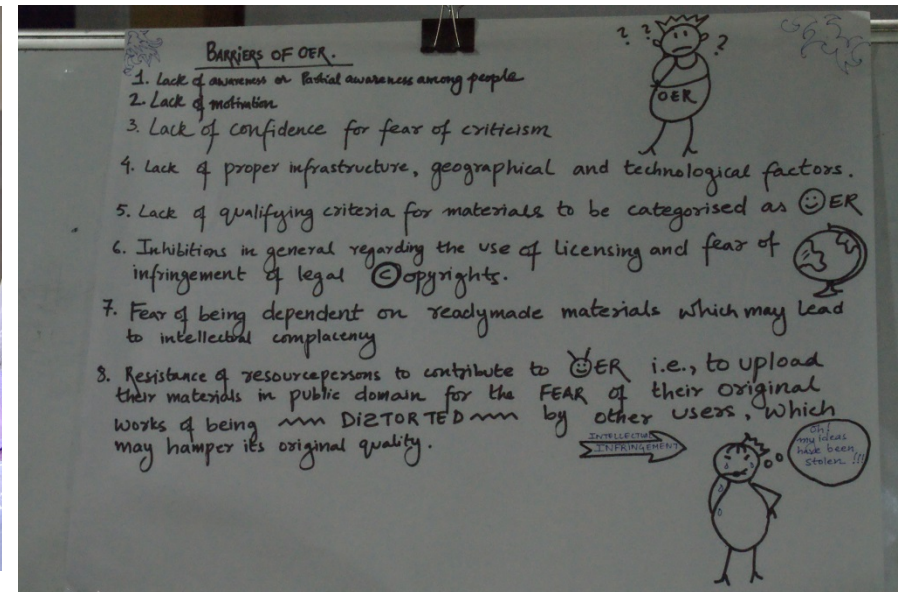 BARRIERS OF OER.
1. Lack of awareness or Partial awareness among people
2. Lack of motivation
3. Lack of confidence for fear of criticism
4. Lack of proper infrastructure, geographical and technological factors.
5. Lack of qualifying criteria for materials to be categorised as OER
6. Inhibitions in general regarding the use of licensing and fear of
infringement of legal ©opyrights.
7. Fear of being dependent on readymade materials which may lead
to intellectual complacency
8. Resistance of resourcepersons to contribute to OER i.e., to upload
their materials in public domain for the FEAR of their original
works of being DIZTORTED by other users, which
may hamper its original quality.
? ? ?
OER
INTELLECTUAL
INFRINGEMENT
Oh!
my ideas
have been
stolen !!!